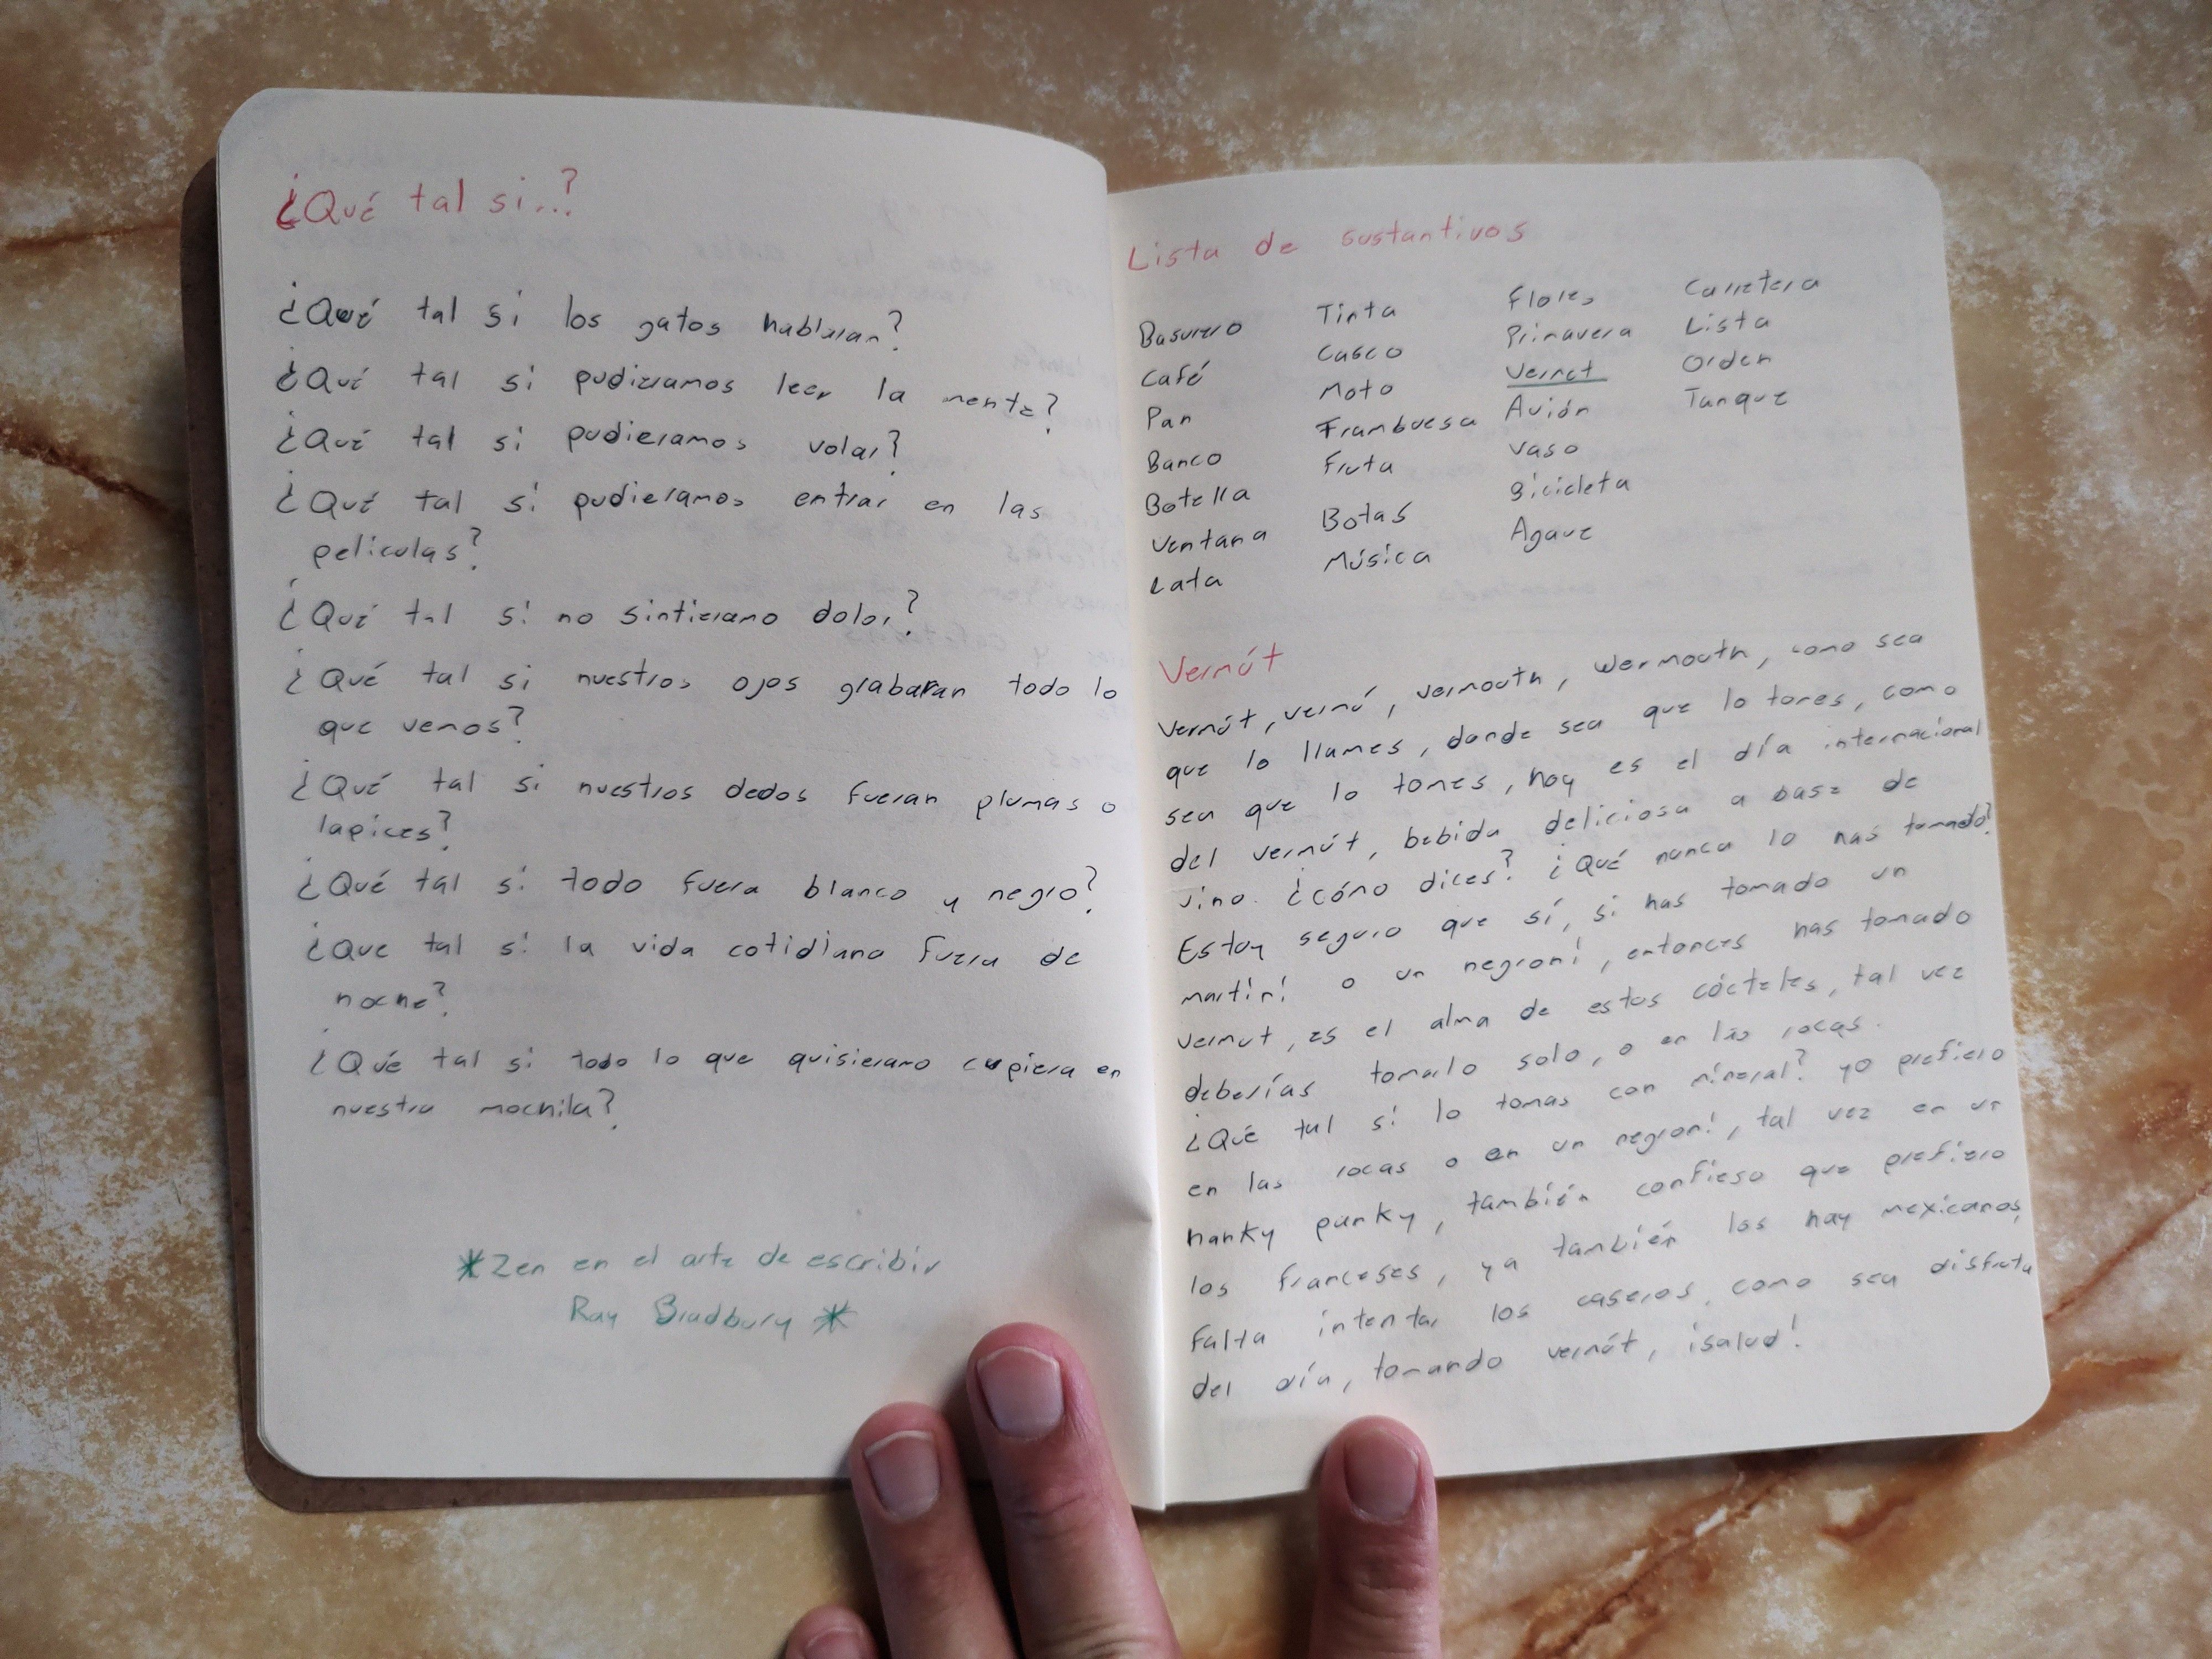 ¿Qué tal si..?
¿Qué tal si los gatos hablaran?
¿Qué tal si pudieramos leer la mente?
¿Qué tal si pudieramos volar?
¿Qué tal si pudieramos entrar en las
peliculas?
¿Qué tal si no sintieramo dolor?
¿Qué tal si nuestros ojos grabaran todo lo
que vemos?
¿Qué tal si nuestros dedos fueran plumas o
lapices?
¿Qué tal si todo fuera blanco y negro?
¿Que tal si la vida cotidiana fuera de
noche?
¿Qué tal si todo lo que quisieramo cupiera en
nuestra mochila?
*Zen en el arte de escribir
Ray Bradbury *
Lista de sustantivos
Basurero Tinta Flores Carretera
Café Casco Primavera Lista
Pan Moto Vermut Orden
Banco Frambuesa Avión Tanque
Botella Fruta Vaso
Ventana Botas Bicicleta
Lata Música Agave
Vermút
Vermút, vermú, vermouth, wermouth, como sea
que lo llames, donde sea que lo tomes, como
sea que lo tomes, hoy es el día internacional
del vermút, bebida deliciosa a base de
vino. ¿cómo dices? ¿Qué nunca lo has tomado?
Estoy seguro que sí, si has tomado un
martini o un negroni, entonces has tomado
vermut, es el alma de estos cócteles, tal vez
deberías tomarlo solo, o en las rocas.
¿Qué tal si lo tomas con mineral? yo prefiero
en las rocas o en un negroni, tal vez en un
hanky panky, también confieso que prefiero
los franceses, ya también los hay mexicanos,
falta intentar los caseros, como sea disfruta
del día, tomando vermút, ¡salud!